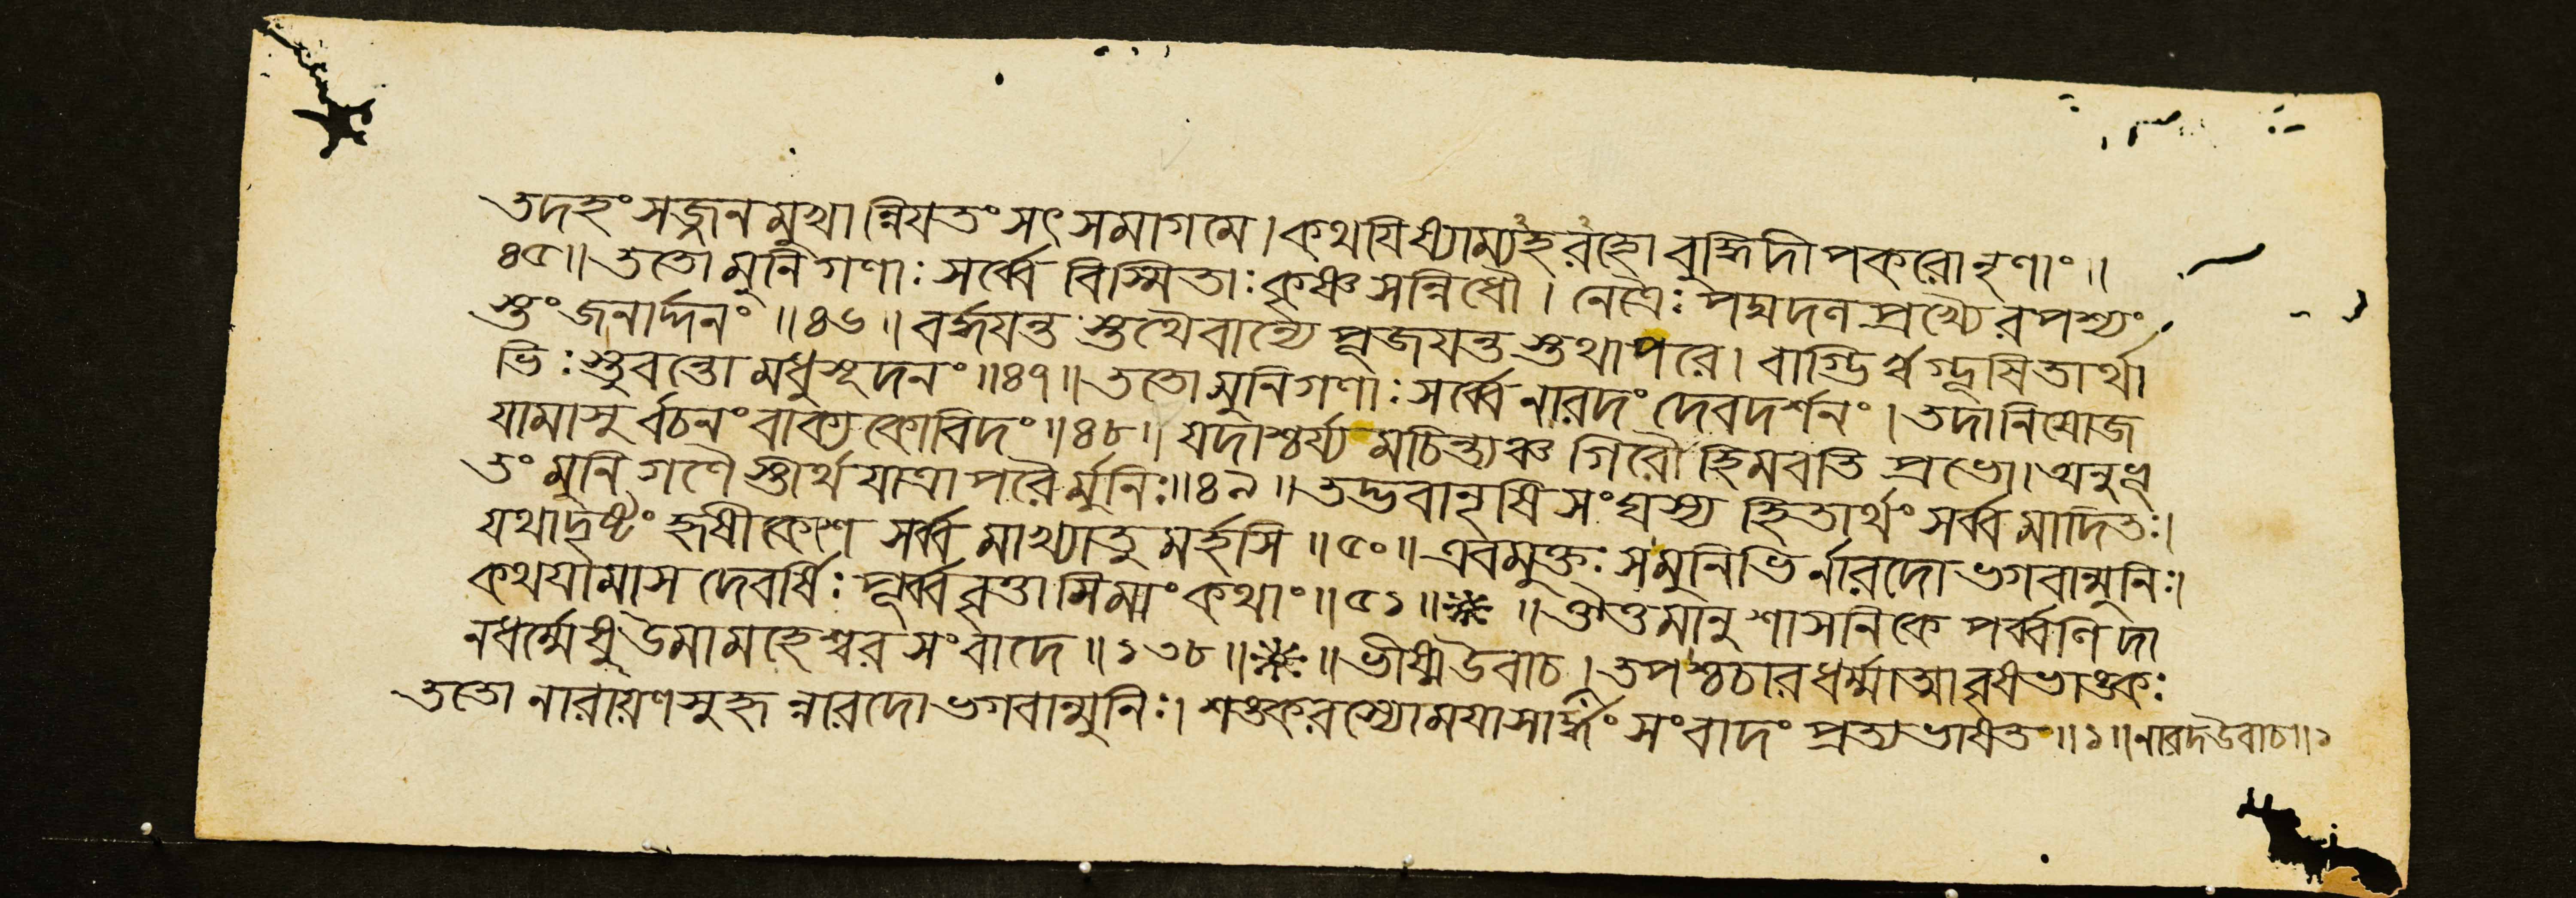 তদহং সজ্জনমুখান্নিযতং সৎসমাগমে। কথযিষ্যাম্যহরহো বুদ্ধিদীপকরোনৃণাং॥
৪৫॥ ততো মুনিগণাঃ সর্ব্বে বিস্মিতাঃ কৃষ্ণসন্নিধৌ। নেত্রৈঃ পদ্মদলপ্রখ্যৈরপশ্যং
স্তং জনার্দ্দনং॥৪৬॥ বর্দ্ধযন্তস্তথৈবান্যে পূজযন্তস্তথাপরে। বাগ্ভির্ঋগ্ভূষিতার্থা
ভিঃ স্তুবন্তো মধুসূদনং॥৪৭॥ ততো মুনিগণাঃ সর্ব্বে নারদং দেবদর্শনং। তদানিযোজ
যামাসুর্বচনং বাক্যকোবিদং॥৪৮॥ যদাশ্চর্য্যমচিন্ত্যঞ্চ গিরৌ হিমবতি প্রভো। অনুভূ
তং মুনিগণৈস্তীর্থযাত্রাপরৈর্মুনিঃ॥৪৯॥ তদ্ভবানৃষিসংঘস্য হিতার্থং সর্ব্বমাদিতঃ।
যথাদৃষ্টং হৃষীকেশে সর্ব্বমাখ্যাতুমর্হসি॥৫০॥ এবমুক্তঃ সমুনিভির্নারদো ভগবান্মুনিঃ।
কথযামাস দেবর্ষিঃ পূর্ব্ববৃত্তামিমাং কথাং॥৫১॥ ॥ ঔত্তমানুশাসনিকে পর্ব্বণি দা
নধর্ম্মেষু উমামহেশ্বরসংবাদে॥১৩৮॥ ॥ ভীষ্মউবাচ। তপশ্চচার ধর্ম্মাত্মা বৃষভাঙ্কঃ
ততো নারায়ণসুহৃন্নারদো ভগবান্মুনিঃ। শঙ্করস্যোমযাসার্দ্ধং সংবাদং প্রত্যভাষত॥১॥ নারদউবাচ॥১